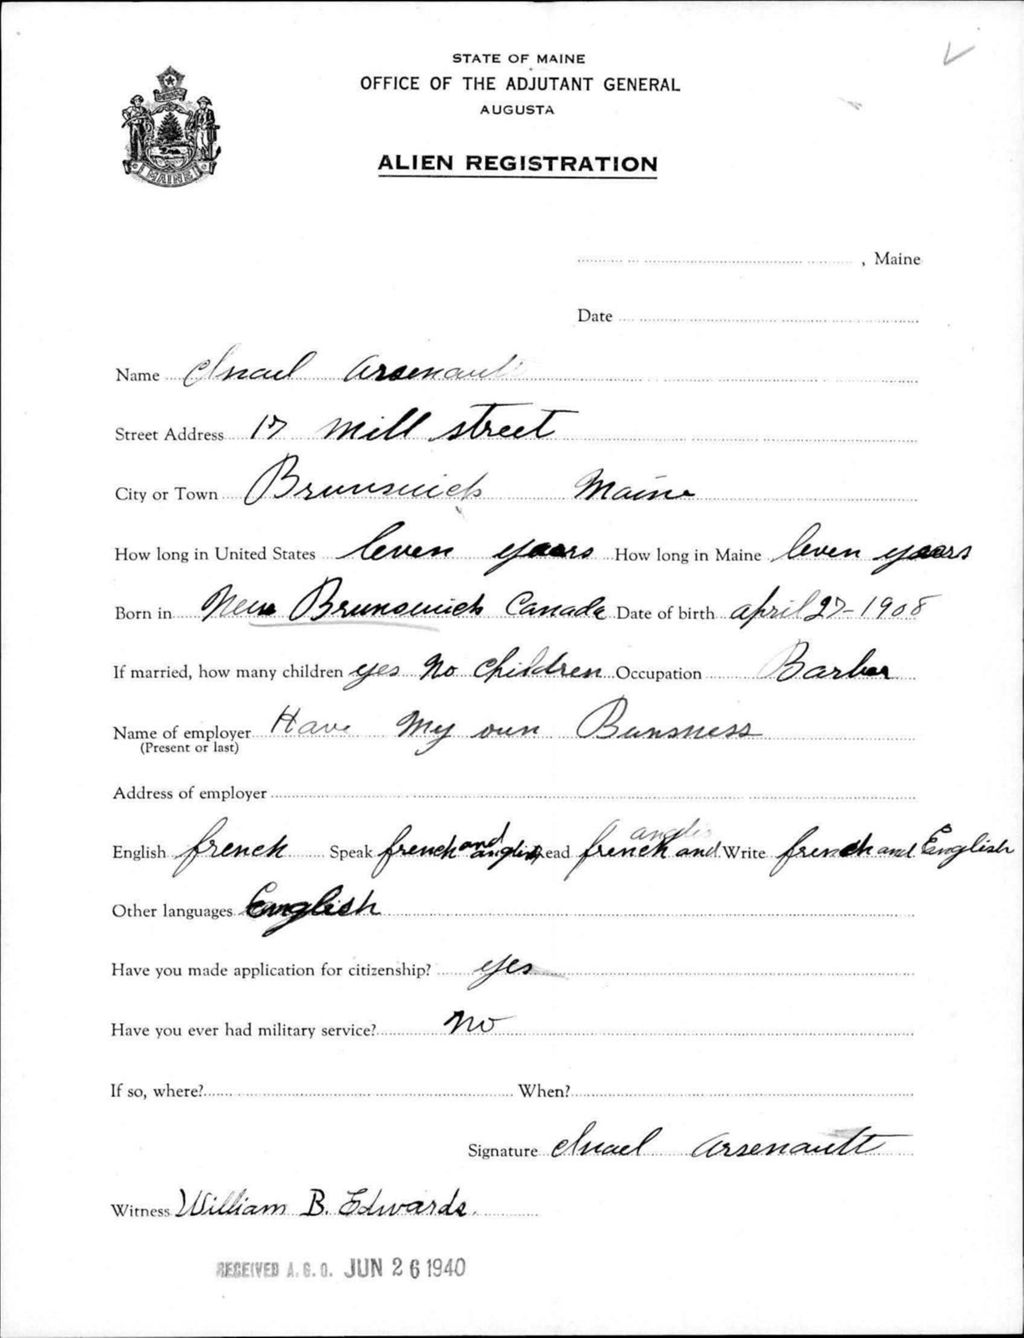 STATE OF MAINE
OFFICE OF THE ADJUTANT GENERAL
AUGUSTA
MAINE
ALIEN REGISTRATION
, Maine
Date
Name Arsenault
Street Address 17 Mill street
City or Town Brunswick Maine
How long in United States leven years How long in Maine leven years
Born in New Brunswick Canada Date of birth april 27-1908
If married, how many children yes No Children Occupation Barber
Name of employer Have My own Bunsness
(Present or last)
Address of employer
English french Speak french and anglis Read french and anglis Write french and English
Other languages English
Have you made application for citizenship? yes
Have you ever had military service? No
If so, where? When?
Signature Arsenault
Witness William B. Edwards.
RECEIVED A.G.O. JUN 26 1940